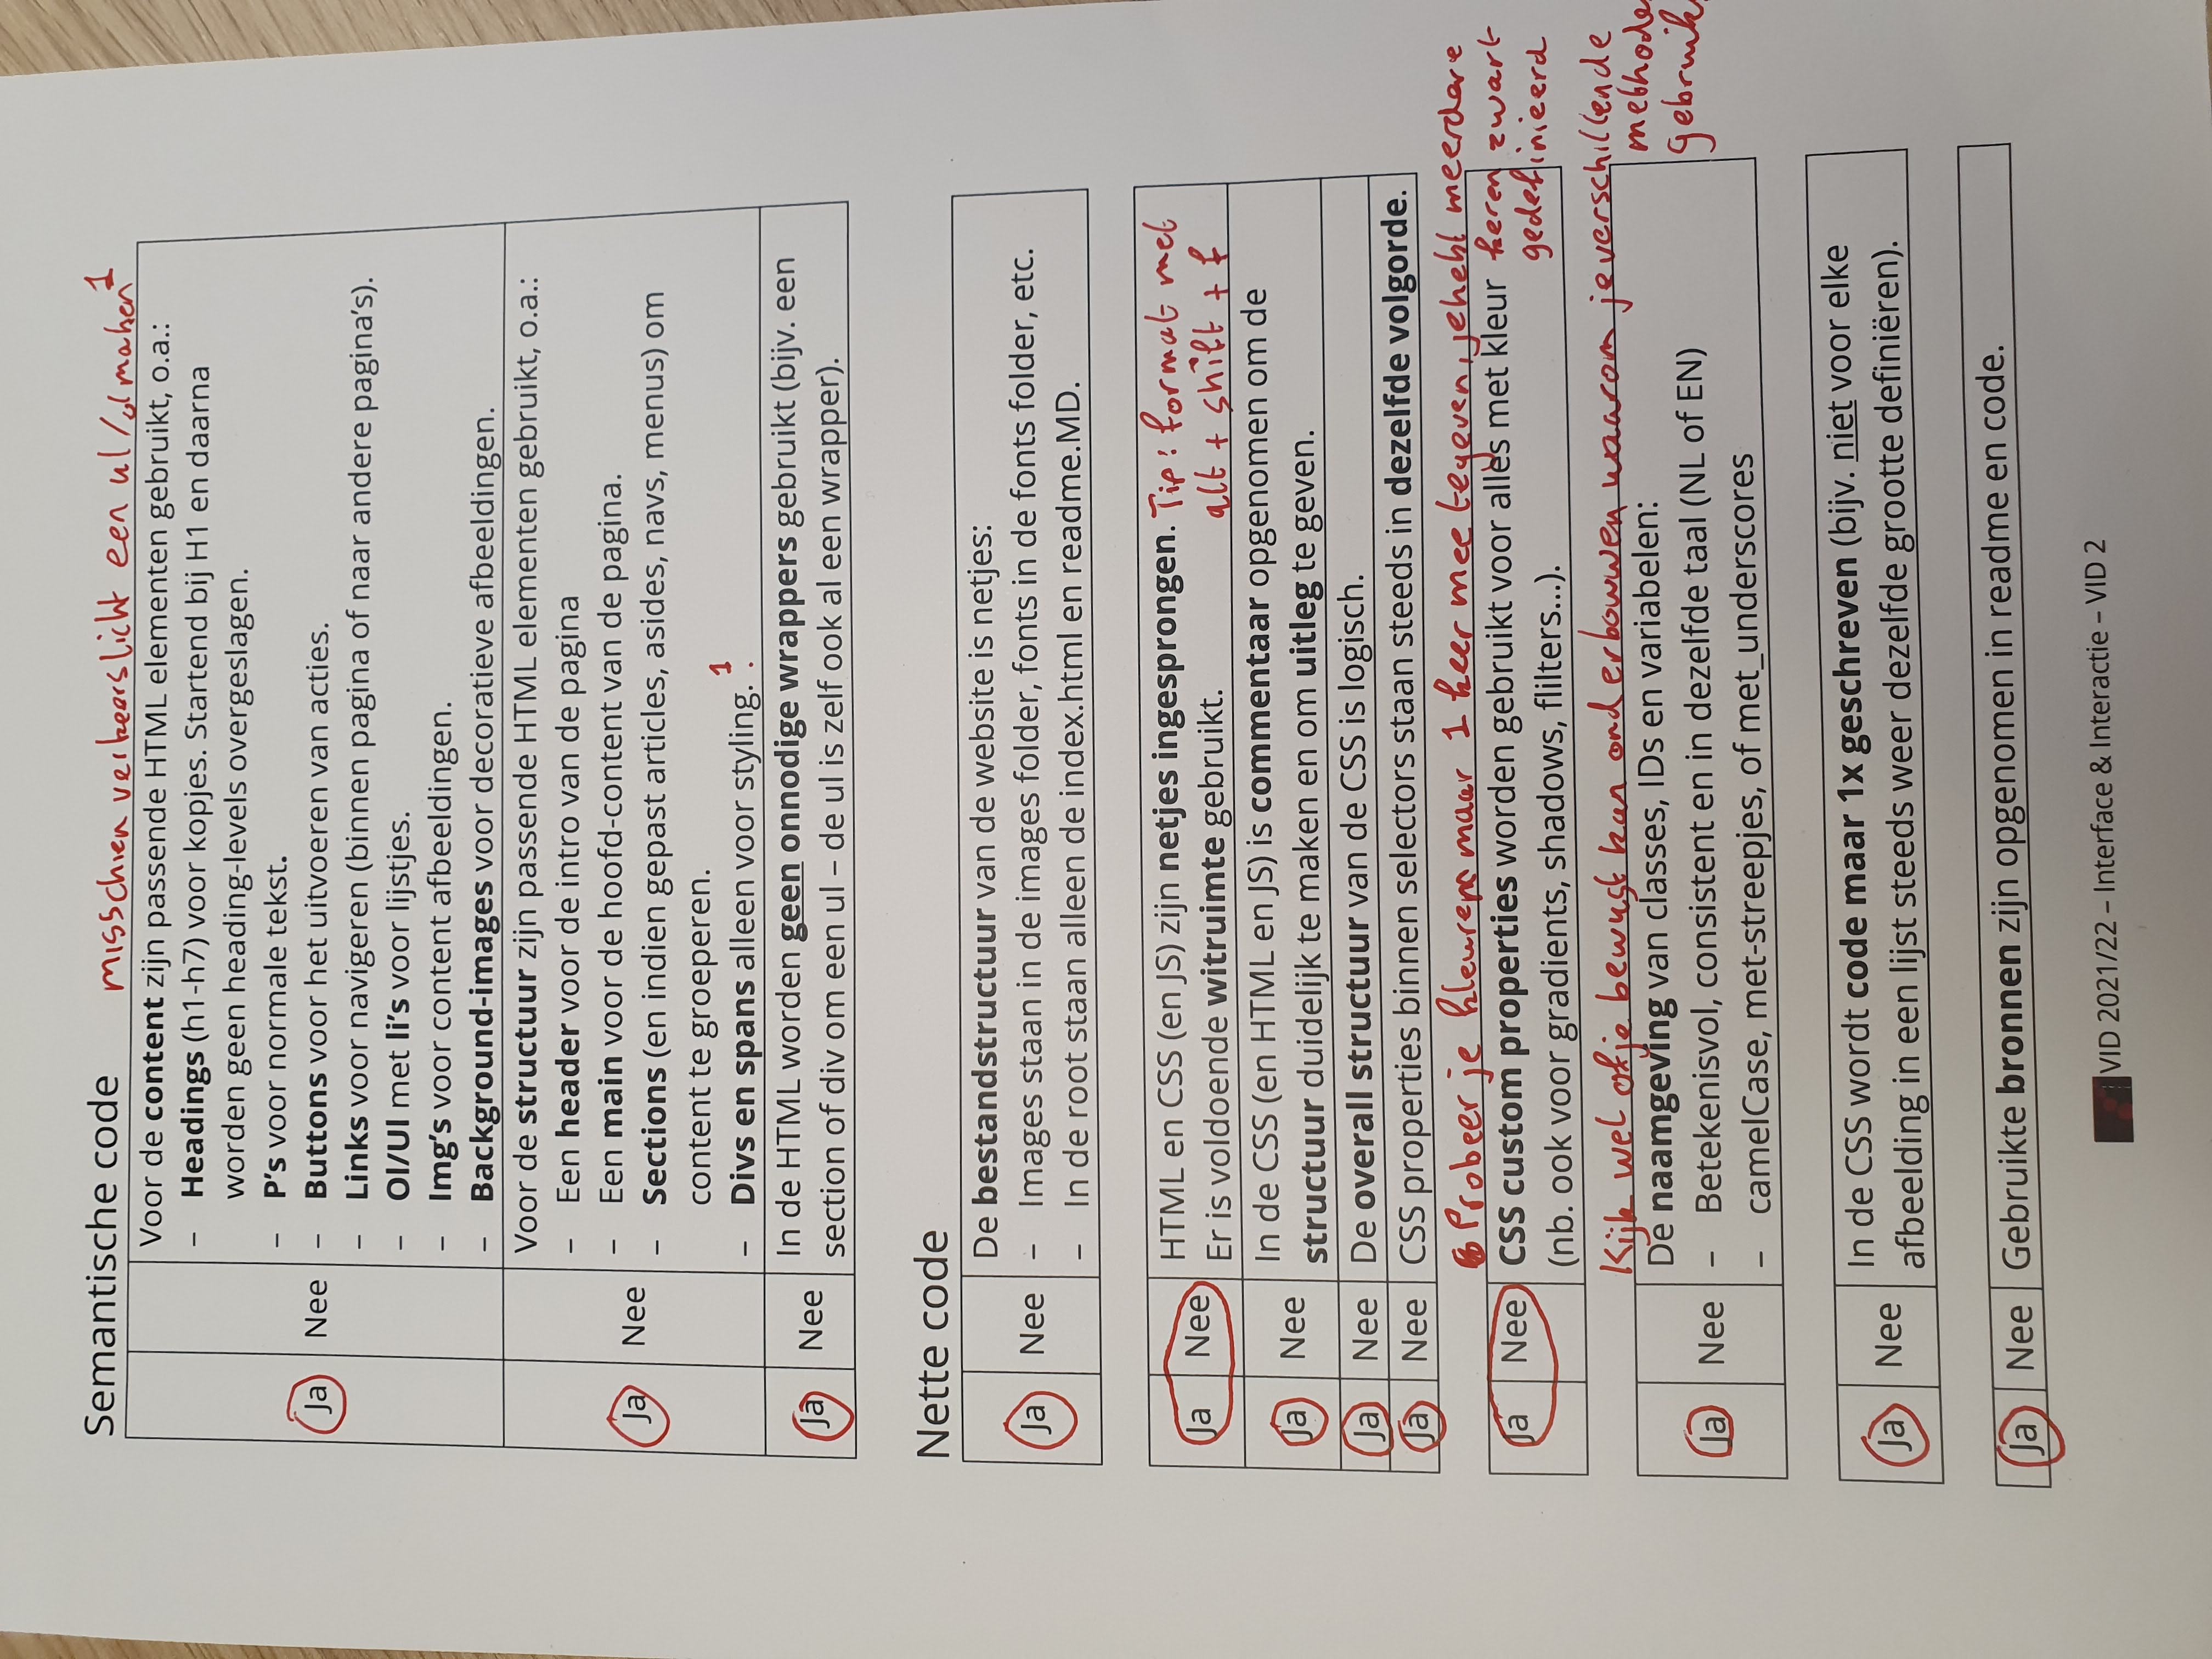 Semantische code
misschien verkeerslicht een ul/ol maken 1
Voor de content zijn passende HTML elementen gebruikt, o.a.:
– Headings (h1-h7) voor kopjes. Startend bij H1 en daarna
worden geen heading-levels overgeslagen.
– P's voor normale tekst.
Ja Nee – Buttons voor het uitvoeren van acties.
– Links voor navigeren (binnen pagina of naar andere pagina's).
– Ol/Ul met li's voor lijstjes.
– Img's voor content afbeeldingen.
– Background-images voor decoratieve afbeeldingen.
Voor de structuur zijn passende HTML elementen gebruikt, o.a.:
– Een header voor de intro van de pagina
– Een main voor de hoofd-content van de pagina.
Ja Nee
– Sections (en indien gepast articles, asides, navs, menus) om
content te groeperen.
– Divs en spans alleen voor styling. 1.
Ja Nee
In de HTML worden geen onnodige wrappers gebruikt (bijv. een
section of div om een ul – de ul is zelf ook al een wrapper).
Nette code
De bestandstructuur van de website is netjes:
Ja Nee – Images staan in de images folder, fonts in de fonts folder, etc.
– In de root staan alleen de index.html en readme.MD.
Ja Nee
HTML en CSS (en JS) zijn netjes ingesprongen. Tip: format met
Er is voldoende witruimte gebruikt. alt + shift + f
Ja Nee
In de CSS (en HTML en JS) is commentaar opgenomen om de
structuur duidelijk te maken en om uitleg te geven.
Ja Nee De overall structuur van de CSS is logisch.
Ja Nee CSS properties binnen selectors staan steeds in dezelfde volgorde.
Probeer je kleuren maar 1 keer mee te geven, je hebt meerdere
Ja Nee CSS custom properties worden gebruikt voor alles met kleur keren zwart
gedefinieerd
(nb. ook voor gradients, shadows, flilters...).
Kijk wel of je bewust kan onderbouwen waarom je verschillende
methode
gebruik
De naamgeving van classes, IDs en variabelen:
Ja Nee – Betekenisvol, consistent en in dezelfde taal (NL of EN)
– camelCase, met-streepjes, of met_underscores
Ja Nee
In de CSS wordt code maar 1x geschreven (bijv. niet voor elke
afbeelding in een lijst steeds weer dezelfde grootte definiëren).
Ja Nee Gebruikte bronnen zijn opgenomen in readme en code.
VID 2021/22 – Interface & Interactie – VID 2